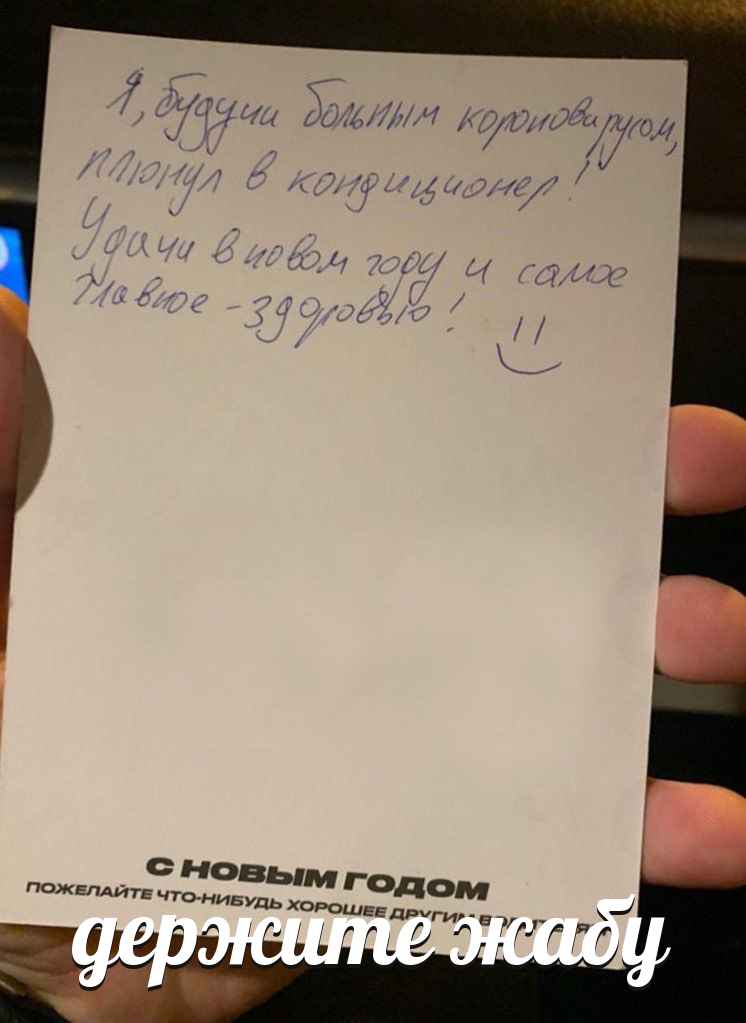 Я, будучи больным короновирусом,
плюнул в кондиционер!
Удачи в новом году и самое
главное - здоровью!
С НОВЫМ ГОДОМ
ПОЖЕЛАЙТЕ ЧТО-НИБУДЬ ХОРОШЕЕ ДРУГИМ
держите жабу